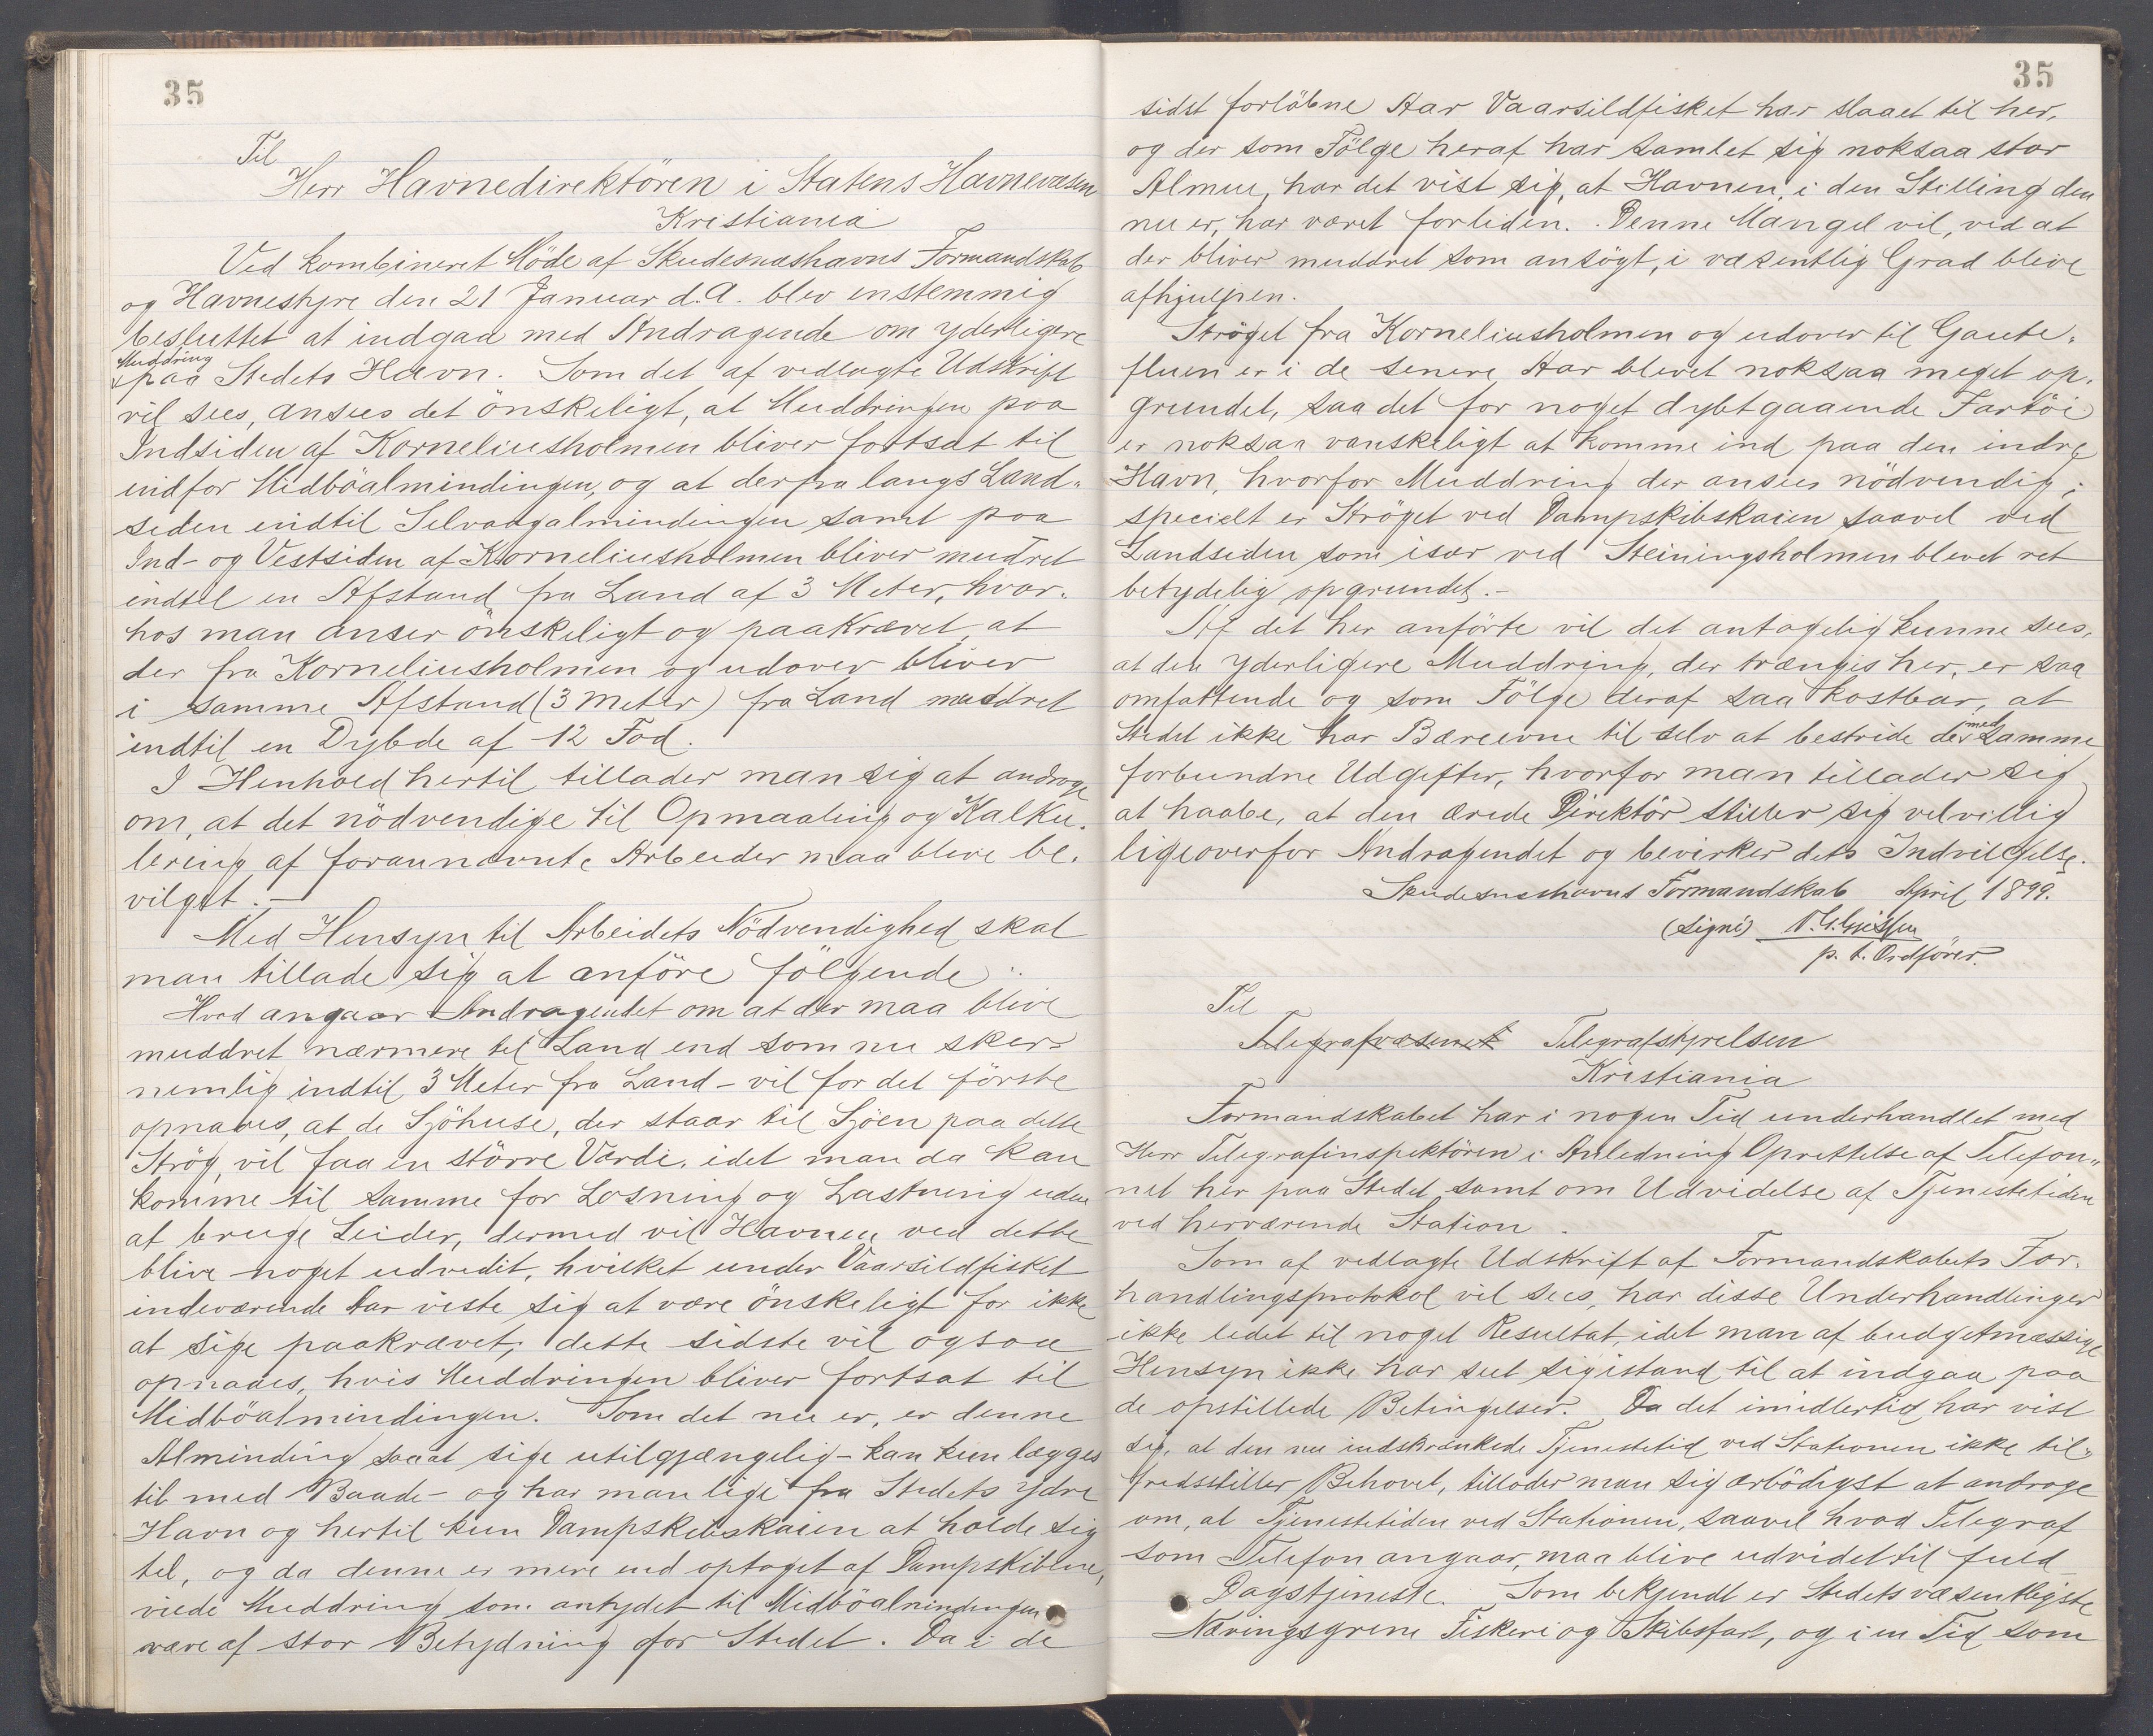 35
Til
Herr Havnedirektören i Statens Havnevæsen
Kristiania
Ved kombineret Möde af Skudesnæshavns Formandskab
og Havnestyre den 21 Januar d.A. blev enstemmig
besluttet at indgaa med Andragende om yderligere
Muddring
paa Stedets Havn. Som det af vedlagte Udskrift
vil sees, ansees det önskeligt, at Muddringen paa
Indsiden af Korneliusholmen bliver fortsat til
indfor Midböalmindingen, og at derfra langs Land-
siden indtil Selvaagalmindingen samt paa
Ind- og Vestsiden af Korneliusholmen bliver mudret
indtil en Afstand fra Land af 3 Meter, hvor-
hos man anser önskeligt og paakrævet, at
der fra Korneliusholmen og udover bliver
i samme Afstand (3 Meter) fra Land muddret
indtil en Dybde af 12 Fod.
I Henhold hertil tillader man sig at androge
om, at det nödvendige til Opmaaling og Kalku-
lering af forannævnte Arbeider maa blive be-
vilget. –
Med Hensyn til Arbeidets Nödvendighed skal
man tillade sig at anföre fölgende:
Hvad angaar Andragendet om at der maa blive
muddret nærmere til Land end som nu sker –
nemlig indtil 3 Meter fra Land – vil for det förste
opnaaes, at de Sjöhuse, der staar til Sjöen paa dette
Strög, vil faa en större Værdi, idet man da kan
komme til samme for Losning og Lastning uden
at bruge Leider, dermed vil Havnen ved dette
blive noget udvidit, hvilket under Vaarsildfisket
indeværende Aar viste sig at være önskeligt for ikke
at sige paakrævet; dette sidste vil ogsaa
opnaaes, hvis Muddringen bliver fortsat til
Midböalmindingen. Som det nu er, er denne
Alminding saaat sige utilgjængelig – kan kun lægges
til med Baade – og har man lige fra Stedets ydre
Havn og hertil kun Dampskibskaien at holde sig
til, og da denne er mere end optaget af Dampskibene,
vilde Muddring som antydet til Midböalmindingen
være af stor Betydning for Stedet. Da i de
35
sidst forlöbne Aar Vaarsildfisket har slaaet til her,
og der som Fölge heraf har samlet sig noksaa stor
Almue, har det vist sig, at Havnen, i den Stilling den
nu er, har været forliden. Denne Mangel vil, ved at
der bliver muddret som ansögt, i væsentlig Grad blive
afhjulpen.
Ströget fra Korneliusholmen og udover til Gaute-
fluen er i de senere Aar blevet noksaa meget op-
grundet, saa det for noget dybtgaaende Fartöi
er noksaa vanskeligt at komme ind paa den indre
Havn, hvorfor Muddring der ansees nödvendig;
specielt er Ströget ved Dampskibskaien saavel ved
Landsiden som især ved Steiningsholmen blevet ret
betydelig opgrundet. –
Af det her anförte vil det antagelig kunne sees,
at den yderligere Muddring, der trænges her, er saa
omfattende og som Fölge deraf saa kostbar, at
Stedet ikke har Bæreevne til selv at bestride de med samme
forbundne Udgifter, hvorfor man tillader sig
at haabe, at den ærede Direktör stiller sig velvillig
ligeoverfor Andragendet og bevirker dets Indvilgelse.
Skudesneshavns Formandskab April 1899.
(Sign)
p. t. Ordförer.
Til
Telegrafvæsenet Telegrafstyrelsen
Kristiania
Formandskabet har i nogen Tid underhandlet med
Herr Telegrafinspektören i Anledning Oprettelse af Telefon-
net her paa Stedet samt om Udvidelse af Tjenestetiden
ved herværende Station.
Som af vedlagte Udskrift af Formandskabets For-
handlingsprotokol vil sees, har disse Underhandlinger
ikke ledet til noget Resultat, idet man af budgetmæssige
Hensyn ikke har seet sig istand til at indgaa paa
de opstillede Betingelser. Da det imidlertid har vist
sig, at den nu indskrænkede Tjenestetid ved Stationen ikke til-
fredsstiller Behovet, tillader man sig ærbödigst at androge
om, at Tjenestetiden ved Stationen, saavel hvad Telegraf
som Telefon angaar, maa blive udvidet til fuld
Dagstjeneste. Som bekjendt er Stedets væsentligste
Næringsgrene Fiskeri og Skibsfart, og i en Tid som